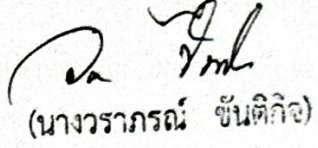 (นางวราภรณ์ ขันติกิจ)